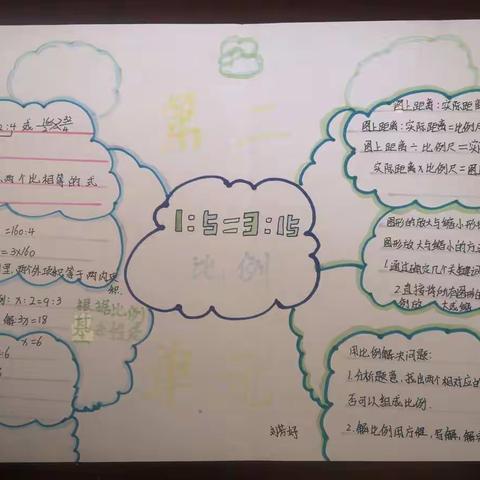 第二
单元
1:5=3:15
比例
两个比相等的式
=160:4
=3×160
两个外项积等于两内项
积.
例: x:2=9:3
解:3x=18
x=6
=6
根据比例
基本性质
图上距离:实际距离
图上距离:实际距离=比例尺
图上距离÷比例尺=实
实际距离×比例尺=图
图形的放大与缩小形
图形放大与缩小的方
1.通过确定几个关键
2.直接将所有图形的
例放大或缩
用比例解决问题:
1.分析题意,找出两个相对应的
否可以组成比例.
2.解比例用方程,写解,解